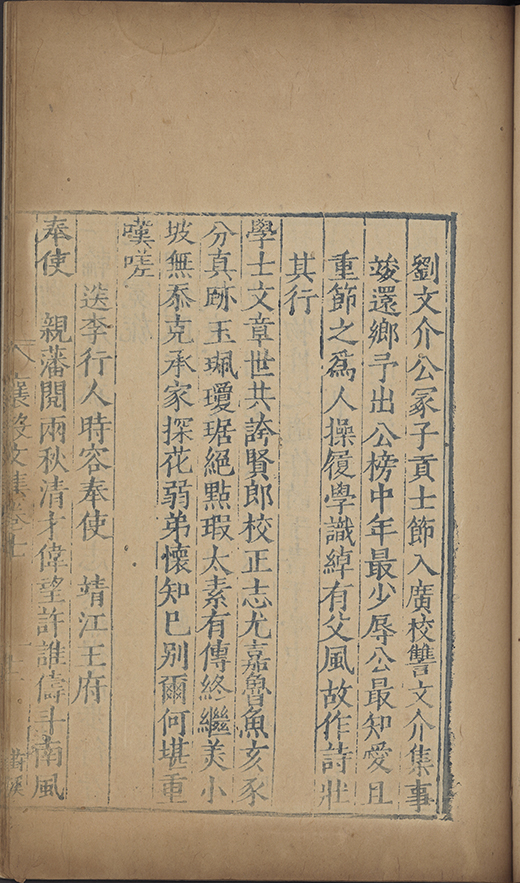 劉文介公冢子貢士節入廣校讐文介集事
竣還鄉予出公榜中年最少辱公最知愛且
重節之爲人操履學識綽有父風故作詩壯
其行
學士文章世共誇賢郎校正志尤嘉魯魚亥豕
分真跡玉珮瓊琚絕點瑕太素有傳終繼美小
坡無忝克承家探花弱弟懷知已别爾何堪重
嘆嗟
送李行人時容奉使 靖江王府
奉使 親藩閱兩秋清才偉望許誰儔斗南風
襄毅文集卷七